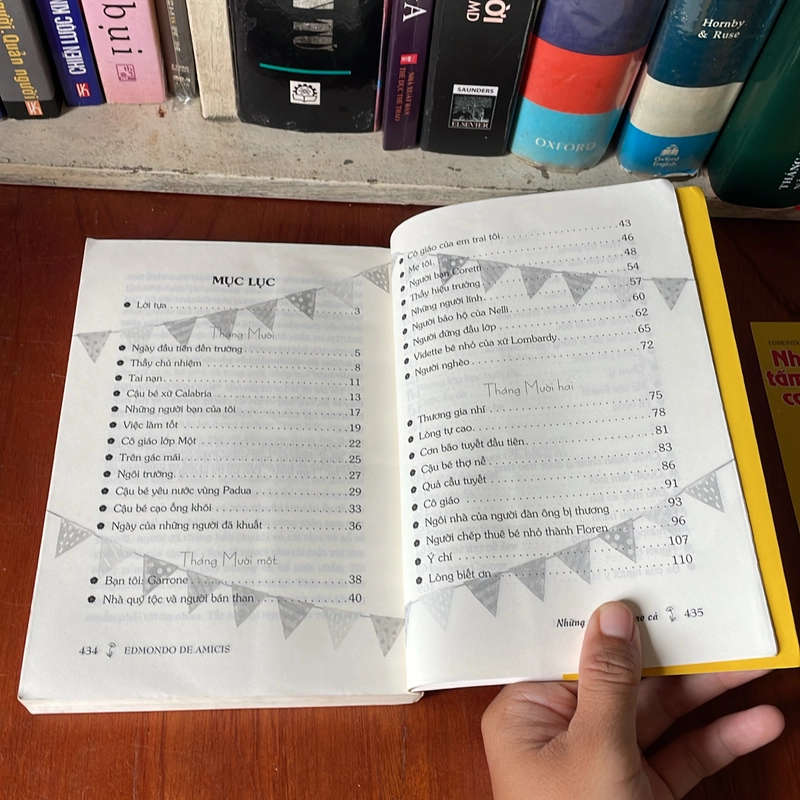 người. Quản người
CHIẾN LƯỢC
bụi
NHÀ XUẤT BẢN
THỂ DỤC THỂ THAO
MD
SAUNDERS
ELSEVIER
OXFORD
Hornby
& Ruse
Oxford
English
THĂNG
MỤC LỤC
Lời tựa 3
Tháng Mười
Ngày đầu tiên đến trường 5
Thầy chủ nhiệm 8
Tai nạn 11
Cậu bé xứ Calabria 13
Những người bạn của tôi 17
Việc làm tốt 19
Cô giáo lớp Một 22
Trên gác mái 25
Ngôi trường 27
Cậu bé yêu nước vùng Padua 29
Cậu bé cạo ống khói 33
Ngày của những người đã khuất 36
Tháng Mười một
Bạn tôi: Garrone 38
Nhà quý tộc và người bán than 40
434 EDMONDO DE AMICIS
Cô giáo của em trai tôi 43
Mẹ tôi 46
Người bạn Coretti 48
Thầy hiệu trưởng 54
Những người lính 57
Người bảo hộ của Nelli 60
Người đứng đầu lớp 62
Vidette bé nhỏ của xứ Lombardy 65
Người nghèo 72
Tháng Mười hai
Thương gia nhí 75
Lòng tự cao 78
Cơn bão tuyết đầu tiên 81
Cậu bé thợ nề 83
Quả cầu tuyết 86
Cô giáo 91
Ngôi nhà của người đàn ông bị thương 93
Người chép thuê bé nhỏ thành Floren 96
Ý chí 107
Lòng biết ơn 110
Những cả 435
EDMONDO
Nh
tấm
ca